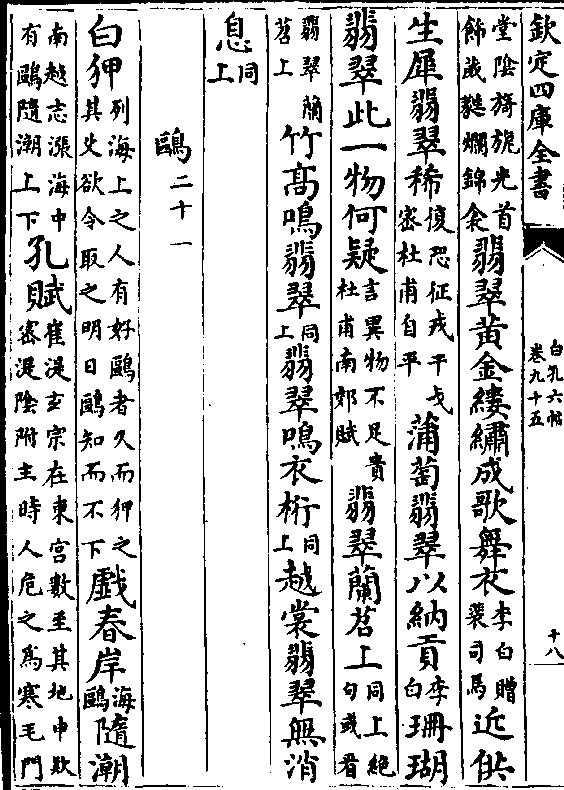 欽定四庫全書
白孔六帖
卷九十五
十八
堂陰旖旎光首飾葳蕤爛錦衾翡翠黃金縷繡成歌舞衣李白贈裴司馬近供
生犀翡翠稀復恐征戎干戈密杜甫自平蒲萄翡翠以納貢李白珊瑚
翡翠此一物何疑言異物不足貴杜甫南郊賦翡翠蘭苕上同上絕句或看
翡翠蘭苕上竹高鳴翡翠同上翡翠鳴衣桁同上越裳翡翠無消
息同上
鷗二十一
白狎列海上之人有好鷗者久而狎之其父欲令取之明日鷗知而不下戲春岸海鷗隨潮
南越志漲海中有鷗隨潮上下孔賦崔湜玄宗在東宮數至其地申款密湜陰附主時人危之為寒毛門